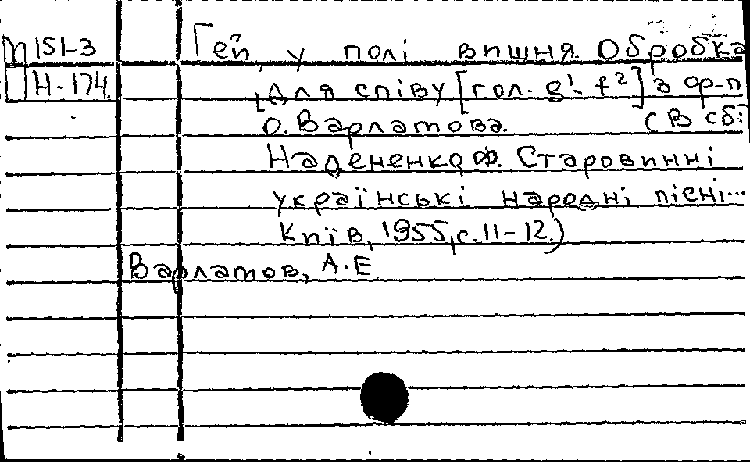 П 151-3 Гей, у полі вишня. Обробка
Н-174 [для співу [гол. g¹-f²] з ф-п
О. Варлатова. (В сб:
Надененко Ф. Старовинні
українські народні пісні...
Київ, 1955, с. 11-12.)
Варлатов, А.Е